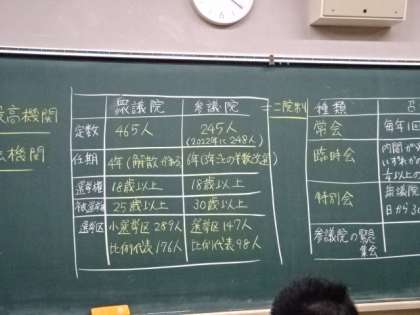 最高機関
法機関
衆議院 参議院
定数 465人 245人
(2022年に248人)
任期 4年(解散がある) 6年(3年ごとの半数改選)
選挙権 18歳以上 18歳以上
被選挙権 25歳以上 30歳以上
選挙区 小選挙区289人 選挙区147人
比例代表176人 比例代表98人
=二院制
種類
常会 毎年1回
臨時会 内閣が
いずれか
1/4以上の
特別会 衆議院
日から30
参議院の緊急
集会